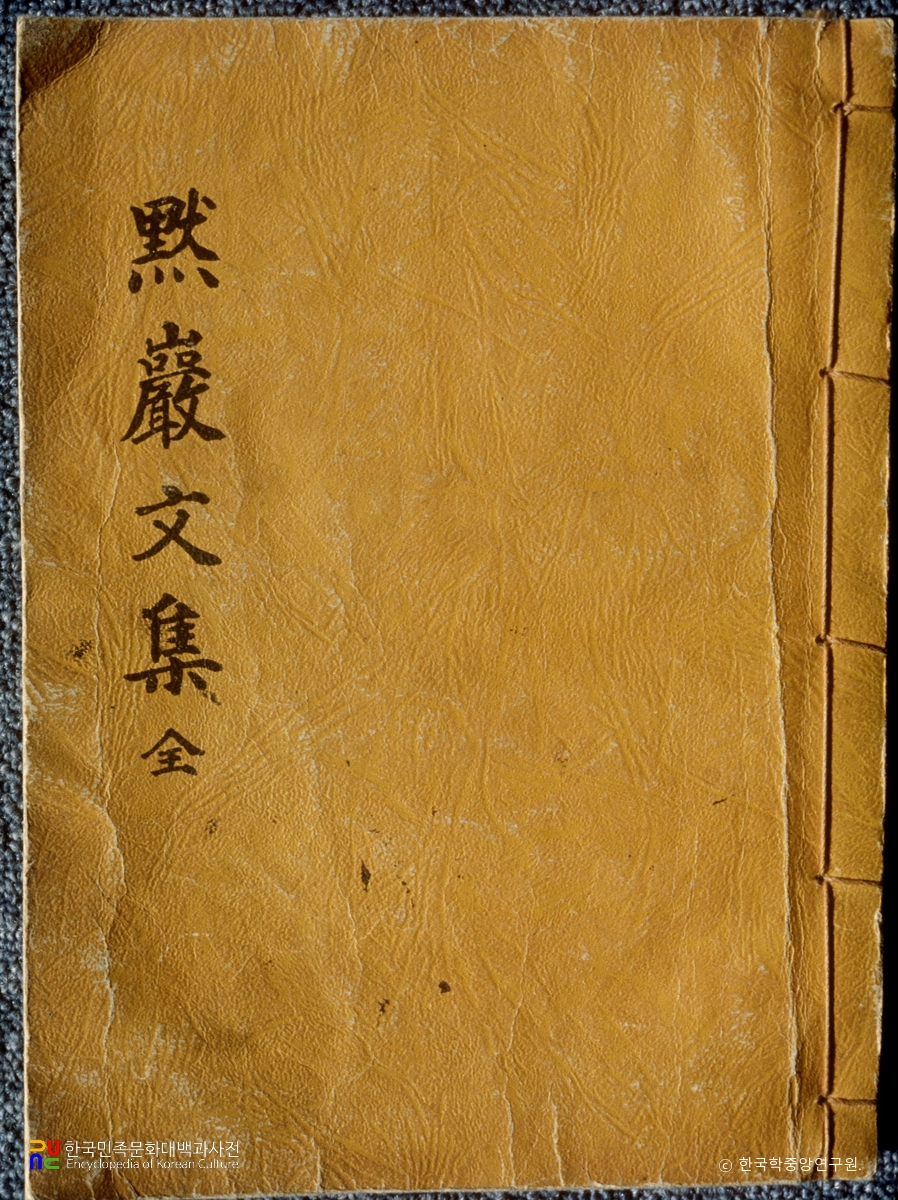 默巖文集 全
한국민족문화대백과사전
Encyclopedia of Korean Culture
© 한국학중앙연구원